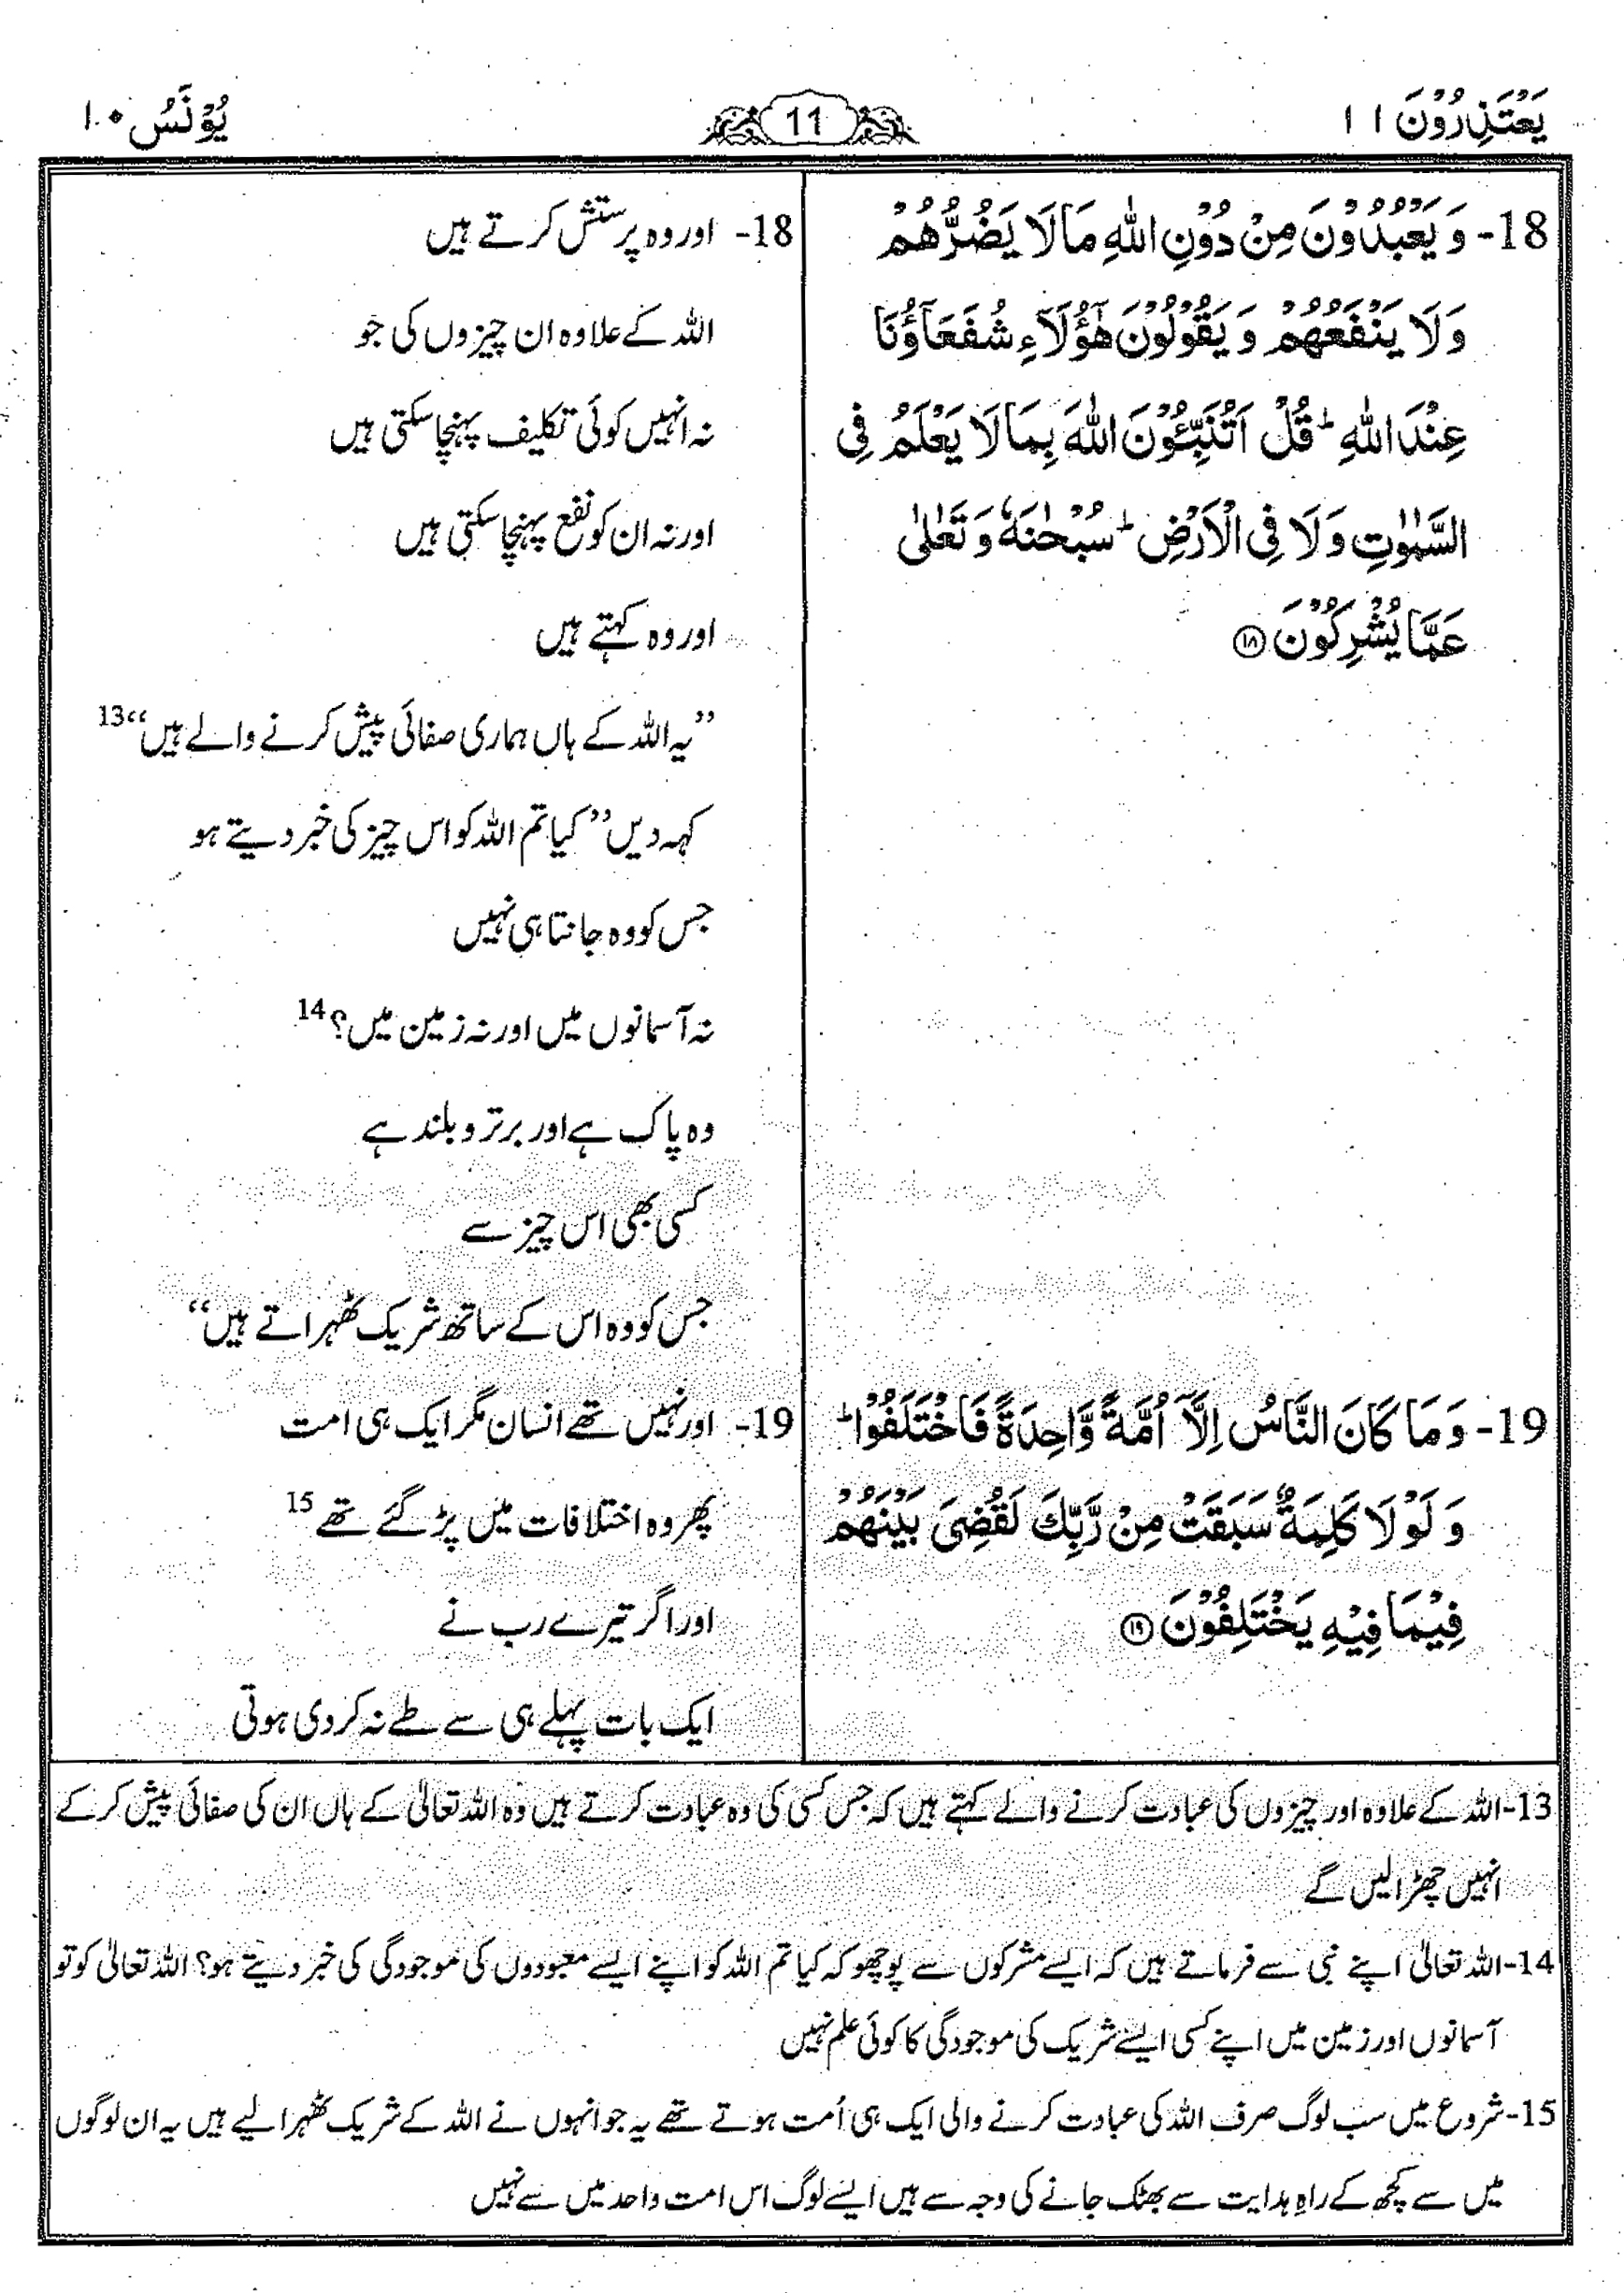 یَعْتَذِرُوْنَ ۱۱
11
یُوْنُسُ ۱۰
18- وَ یَعْبُدُوْنَ مِنْ دُوْنِ اللّٰهِ مَا لَا یَضُرُّهُمْ
وَ لَا یَنْفَعُهُمْ وَ یَقُوْلُوْنَ هٰۤؤُلَآءِ شُفَعَآؤُنَا
عِنْدَ اللّٰهِ ؕ قُلْ اَتُنَبِّـُٔوْنَ اللّٰهَ بِمَا لَا یَعْلَمُ فِی
السَّمٰوٰتِ وَ لَا فِی الْاَرْضِ ؕ سُبْحٰنَهٗ وَ تَعٰلٰی
عَمَّا یُشْرِكُوْنَ ۝۱۸
19- وَ مَا كَانَ النَّاسُ اِلَّاۤ اُمَّةً وَّاحِدَةً فَاخْتَلَفُوْا ؕ
وَ لَوْ لَا كَلِمَةٌ سَبَقَتْ مِنْ رَّبِّكَ لَقُضِیَ بَیْنَهُمْ
فِیْمَا فِیْهِ یَخْتَلِفُوْنَ ۝۱۹
18- اور وہ پرستش کرتے ہیں
اللہ کے علاوہ ان چیزوں کی جو
نہ انہیں کوئی تکلیف پہنچا سکتی ہیں
اور نہ ان کو نفع پہنچا سکتی ہیں
اور وہ کہتے ہیں
”یہ اللہ کے ہاں ہماری صفائی پیش کرنے والے ہیں“13
کہہ دیں ”کیا تم اللہ کو اس چیز کی خبر دیتے ہو
جس کو وہ جانتا ہی نہیں
نہ آسمانوں میں اور نہ زمین میں؟14
وہ پاک ہے اور برتر و بلند ہے
کسی بھی اس چیز سے
جس کو وہ اس کے ساتھ شریک ٹھہراتے ہیں“
19- اور نہیں تھے انسان مگر ایک ہی امت
پھر وہ اختلافات میں پڑ گئے تھے15
اور اگر تیرے رب نے
ایک بات پہلے ہی سے طے نہ کر دی ہوتی
13-اللہ کے علاوہ اور چیزوں کی عبادت کرنے والے کہتے ہیں کہ جس کسی کی وہ عبادت کرتے ہیں وہ اللہ تعالیٰ کے ہاں ان کی صفائی پیش کر کے
انہیں چھڑا لیں گے
14-اللہ تعالیٰ اپنے نبی سے فرماتے ہیں کہ ایسے مشرکوں سے پوچھو کہ کیا تم اللہ کو اپنے ایسے معبودوں کی موجودگی کی خبر دیتے ہو؟ اللہ تعالیٰ کو تو
آسمانوں اور زمین میں اپنے کسی ایسے شریک کی موجودگی کا کوئی علم نہیں
15-شروع میں سب لوگ صرف اللہ کی عبادت کرنے والی ایک ہی اُمت ہوتے تھے یہ جو انہوں نے اللہ کے شریک ٹھہرا لیے ہیں یہ ان لوگوں
میں سے کچھ کے راہِ ہدایت سے بھٹک جانے کی وجہ سے ہیں ایسے لوگ اس امت واحد میں سے نہیں